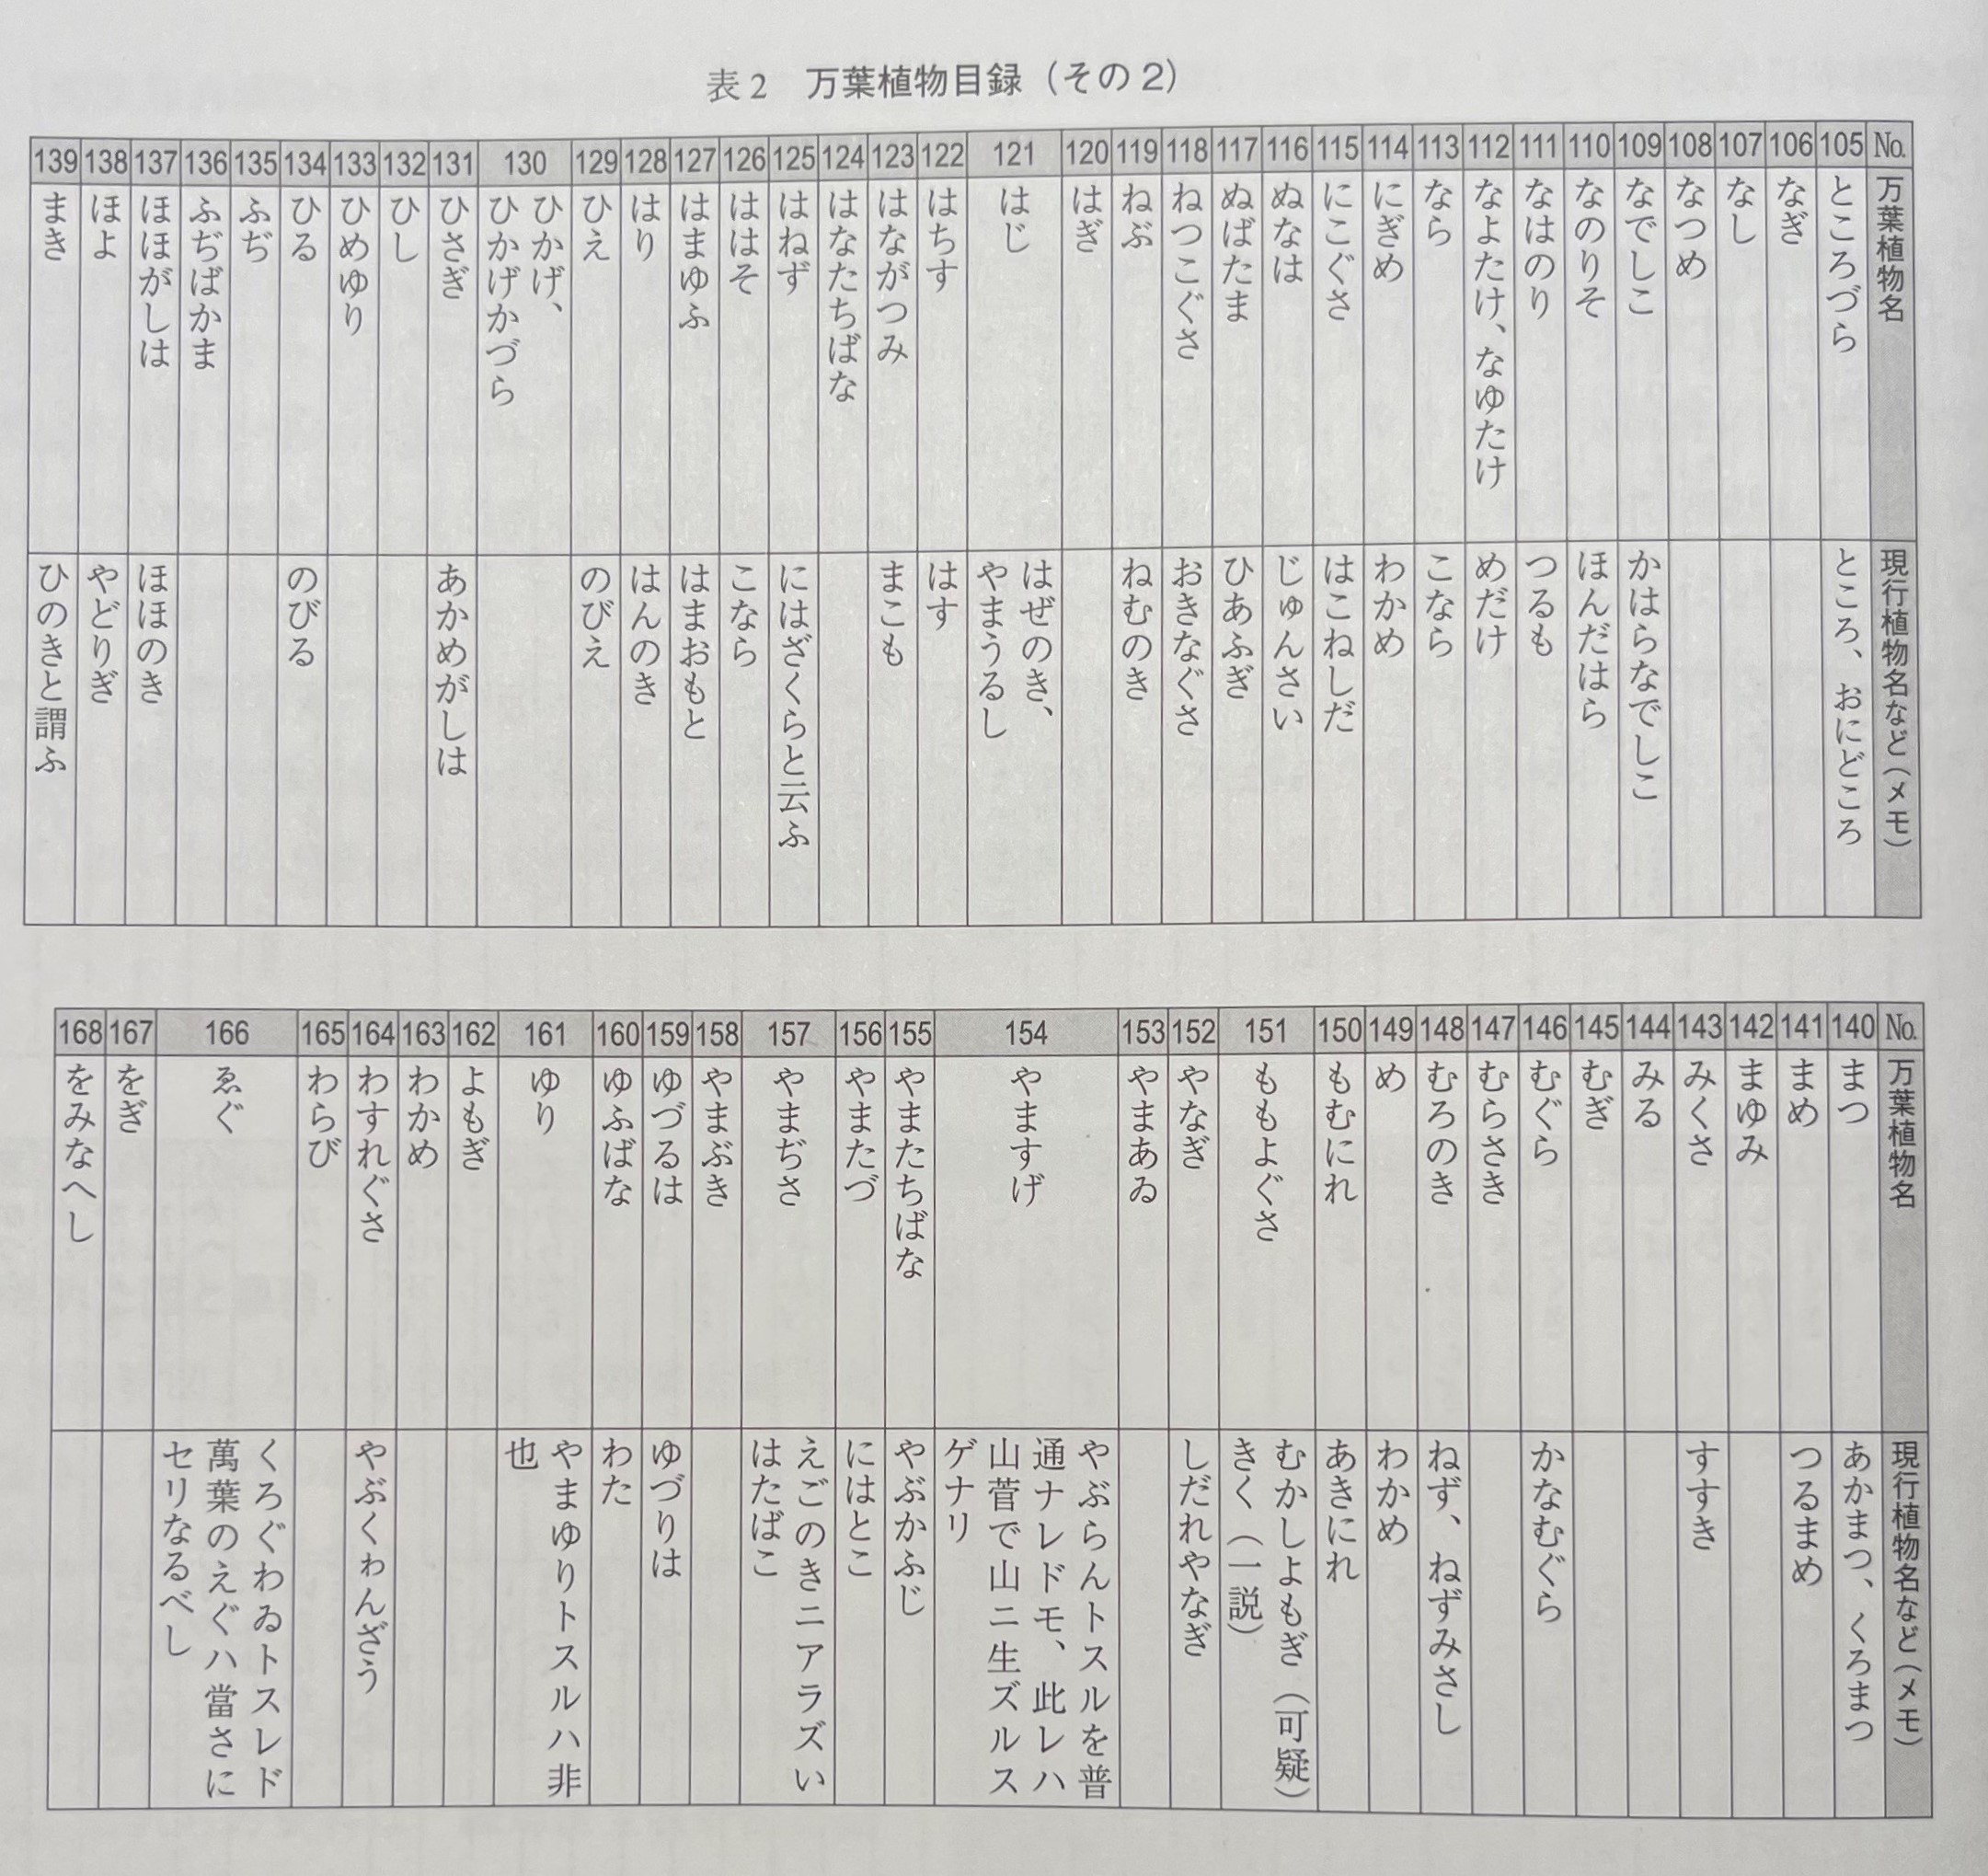 表2　万葉植物目録（その2）
No. 万葉植物名 現行植物名など（メモ）
105 ところづら ところ、おにどころ
106 なぎ
107 なし
108 なつめ
109 なでしこ かはらなでしこ
110 なのりそ ほんだはら
111 なはのり つるも
112 なよたけ、なゆたけ めだけ
113 なら こなら
114 にぎめ わかめ
115 にこぐさ はこねしだ
116 ぬなは じゅんさい
117 ぬばたま ひあふぎ
118 ねつこぐさ おきなぐさ
119 ねぶ ねむのき
120 はぎ
121 はじ はぜのき、
やまうるし
122 はちす はす
123 はながつみ まこも
124 はなたちばな
125 はねず にはざくらと云ふ
126 ははそ こなら
127 はまゆふ はまおもと
128 はり はんのき
129 ひえ のびえ
130 ひかげ、
ひかげかづら
131 ひさぎ あかめがしは
132 ひし
133 ひめゆり
134 ひる のびる
135 ふぢ
136 ふぢばかま
137 ほほがしは ほほのき
138 ほよ やどりぎ
139 まき ひのきと謂ふ
No. 万葉植物名 現行植物名など（メモ）
140 まつ あかまつ、くろまつ
141 まめ つるまめ
142 まゆみ
143 みくさ すすき
144 みる
145 むぎ
146 むぐら かなむぐら
147 むらさき
148 むろのき ねず、ねずみさし
149 め わかめ
150 もむにれ あきにれ
151 ももよぐさ むかしよもぎ（可疑）
きく（一説）
152 やなぎ しだれやなぎ
153 やまあゐ
154 やますげ やぶらんトスルを普
通ナレドモ、此レハ
山菅で山ニ生ズルス
ゲナリ
155 やまたちばな やぶかふじ
156 やまたづ にはとこ
157 やまぢさ えごのきニアラズい
はたばこ
158 やまぶき
159 ゆづるは ゆづりは
160 ゆふばな わた
161 ゆり やまゆりトスルハ非
也
162 よもぎ
163 わかめ
164 わすれぐさ やぶくわんざう
165 わらび
166 ゑぐ くろぐわゐトスレド
萬葉のえぐハ當さに
セリなるべし
167 をぎ
168 をみなへし